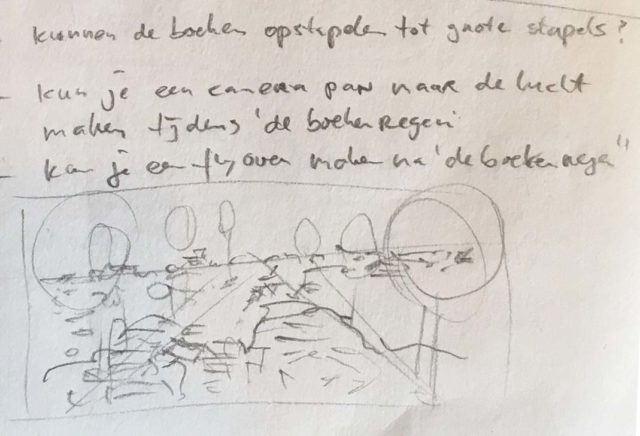 - kunnen de boeken opstapelen tot grote stapels?
- kun je een camera pan naar de lucht
maken tijdens 'de boekenregen'
- kan je een fly over maken na 'de boekenregen"